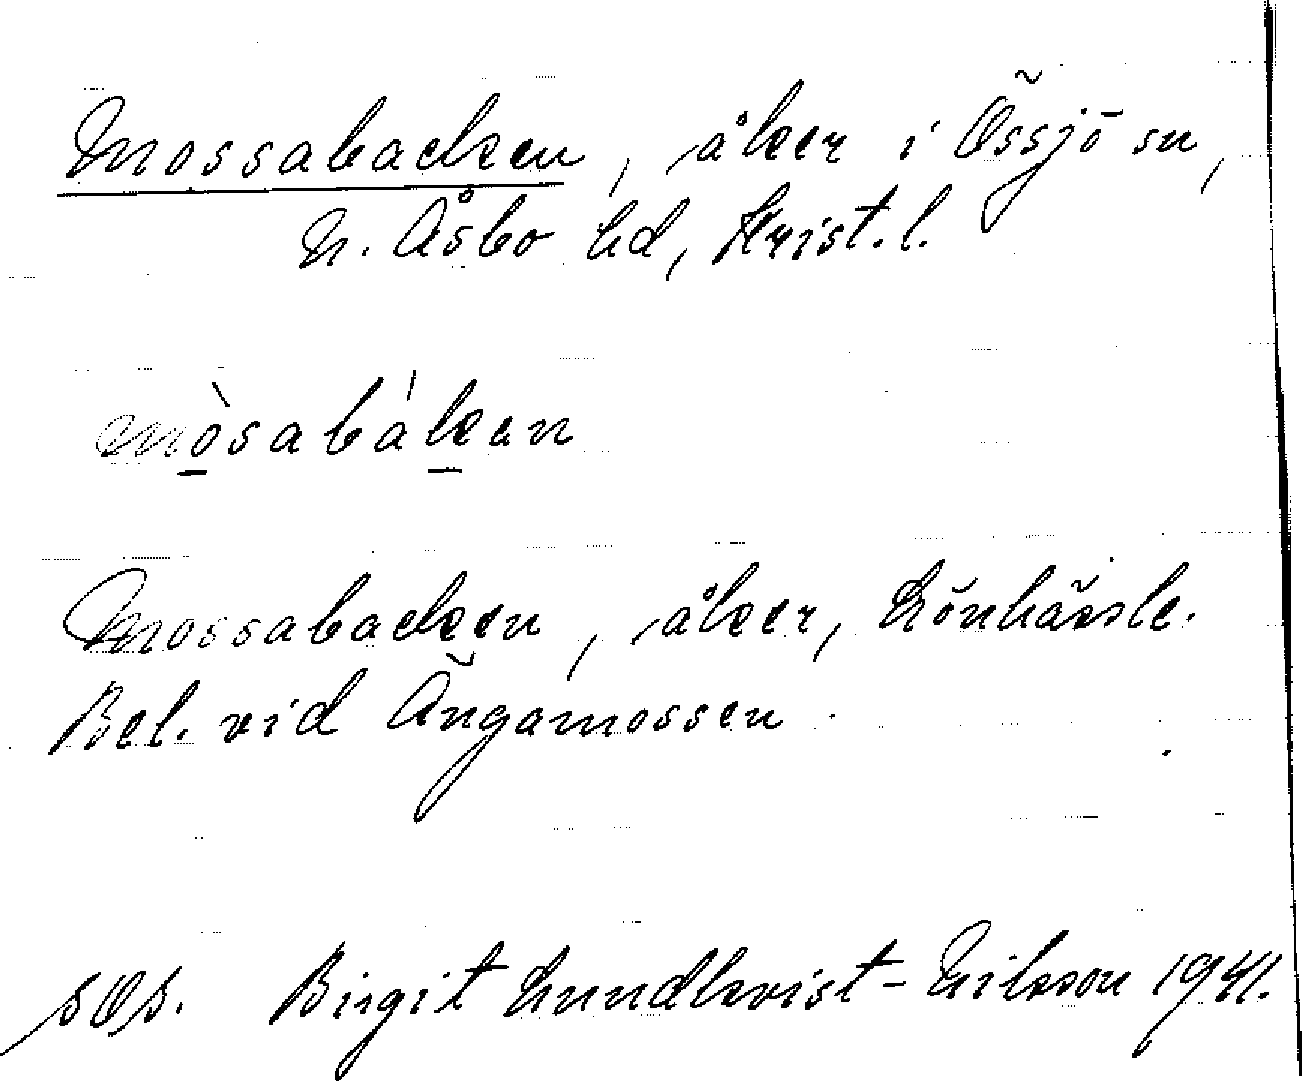 Mossabacken, åker i Össjö sn,
N. Åsbo hd, Krist. l.
mòsabàkan
Mossabacken, åker, Lönhässle.
Bel. vid Ängamossen.
sOs. Birgit Lundkvist-Nilsson 1941.